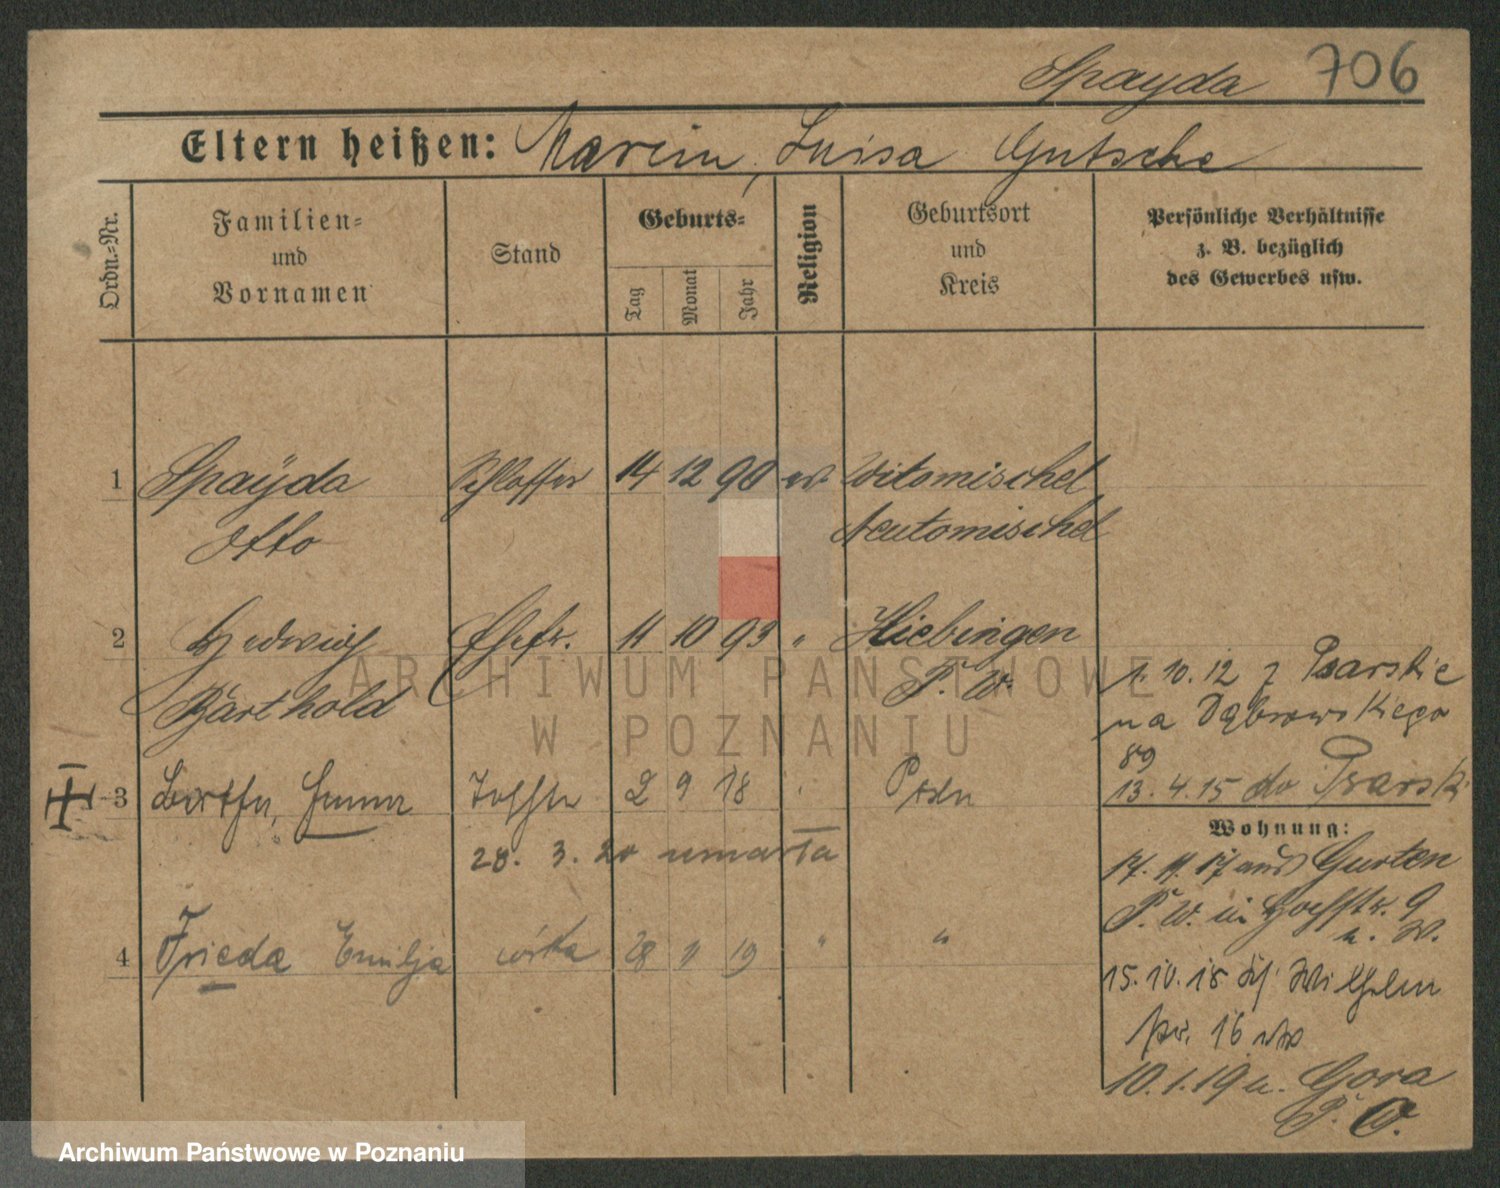 Spayda 706
Eltern heißen: Marcin, Luisa Gutsche
Ordn.-Nr.
Familien-
und
Vornamen
Stand
Geburts-
Tag
Monat
Jahr
Religion
Geburtsort
und
Kreis
Persönliche Verhältnisse
z. B. bezüglich
des Gewerbes usw.
1 Spayda Schlosser 14 12 90 ev Witomischel
Otto Neutomischel
2 Hedwig Ehefr. 11 10 93 " Kiebingen
Barthold P. W.
1. 10. 12 z Psarskie
na Dąbrowskiego
89
13. 4. 15 do Psarski
3 Berta, Emma Tochter 2 9 18 Posen
28. 3. 20 umarła
Wohnung:
17. 11. 17 aus Gurten
P. W. in 9
15. 10. 18 Wilhelm
16
10. 1. 19 n. Gora
P. O.
4 Frieda Emilja córka 28 11 19 " "
ARCHIWUM PAŃSTWOWE
W POZNANIU
Archiwum Państwowe w Poznaniu